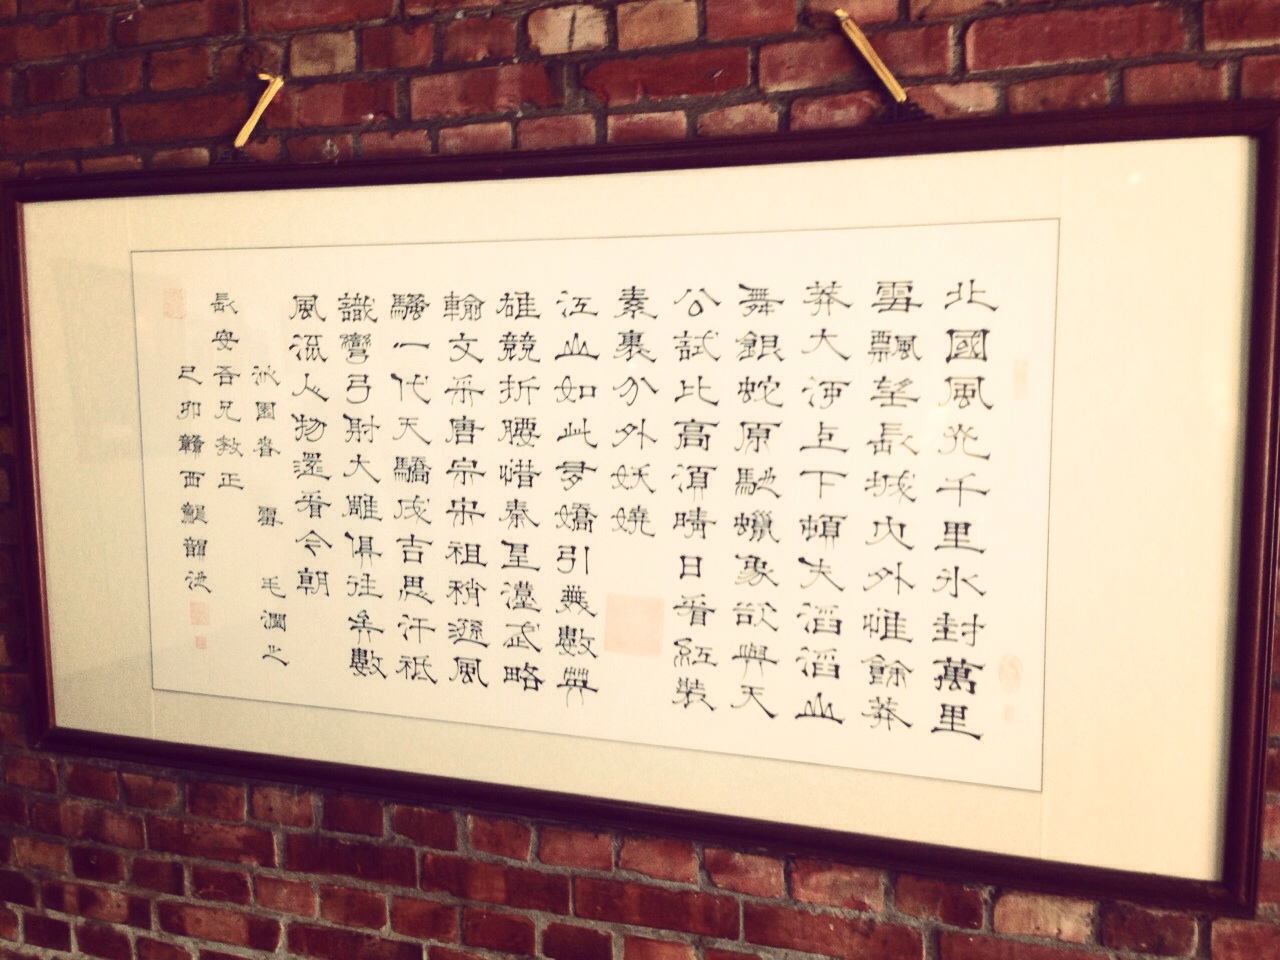 北國風光千里冰封萬里
雪飄望長城內外唯餘莽
莽大河上下頓失滔滔山
舞銀蛇原馳蠟象欲與天
公試比高須晴日看紅裝
素裹分外妖嬈
江山如此多嬌引無數英
雄競折腰惜秦皇漢武略
輸文采唐宗宋祖稍遜風
騷一代天驕成吉思汗祗
識彎弓射大雕俱往矣數
風流人物還看今朝
沁園春 雪 毛潤之
長安吾兄教正
己卯贛西龔韶